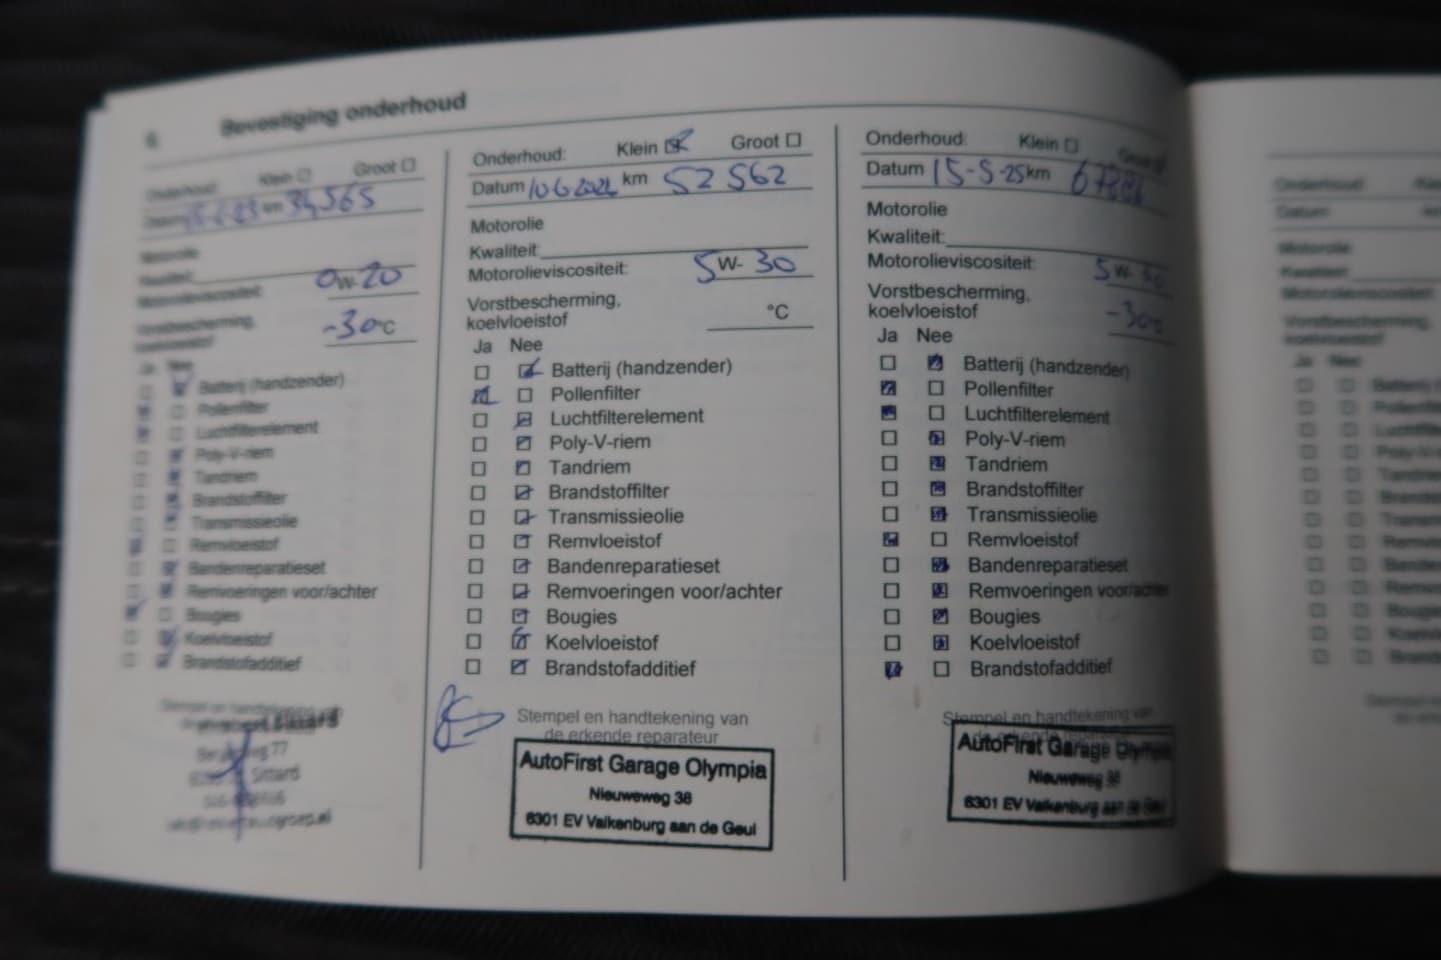 6 Bevestiging onderhoud
Onderhoud: Klein Groot
Datum km 34565
Motorolie
Kwaliteit:
Motorolieviscositeit: 0W-20
Vorstbescherming, koelvloeistof -30°C
Ja Nee
Batterij (handzender)
Pollenfilter
Luchtfilterelement
Poly-V-riem
Tandriem
Brandstoffilter
Transmissieolie
Remvloeistof
Bandenreparatieset
Remvoeringen voor/achter
Bougies
Koelvloeistof
Brandstofadditief
Stempel en handtekening van
77
Sittard
Onderhoud: Klein Groot
Datum 10 6 2024 km 52 562
Motorolie
Kwaliteit:
Motorolieviscositeit: 5W-30
Vorstbescherming,
koelvloeistof °C
Ja Nee
Batterij (handzender)
Pollenfilter
Luchtfilterelement
Poly-V-riem
Tandriem
Brandstoffilter
Transmissieolie
Remvloeistof
Bandenreparatieset
Remvoeringen voor/achter
Bougies
Koelvloeistof
Brandstofadditief
Stempel en handtekening van
de erkende reparateur
AutoFirst Garage Olympia
Nieuweweg 38
6301 EV Valkenburg aan de Geul
Onderhoud: Klein Groot
Datum 15-5-25 km
Motorolie
Kwaliteit:
Motorolieviscositeit: 5W-
Vorstbescherming,
koelvloeistof -30°C
Ja Nee
Batterij (handzender)
Pollenfilter
Luchtfilterelement
Poly-V-riem
Tandriem
Brandstoffilter
Transmissieolie
Remvloeistof
Bandenreparatieset
Remvoeringen voor/achter
Bougies
Koelvloeistof
Brandstofadditief
Stempel en handtekening van
de erkende reparateur
AutoFirst Garage Olympia
Nieuweweg 38
6301 EV Valkenburg aan de Geul
Onderhoud:
Datum
Motorolie
Kwaliteit:
Motorolieviscositeit:
Vorstbescherming,
koelvloeistof
Ja Nee